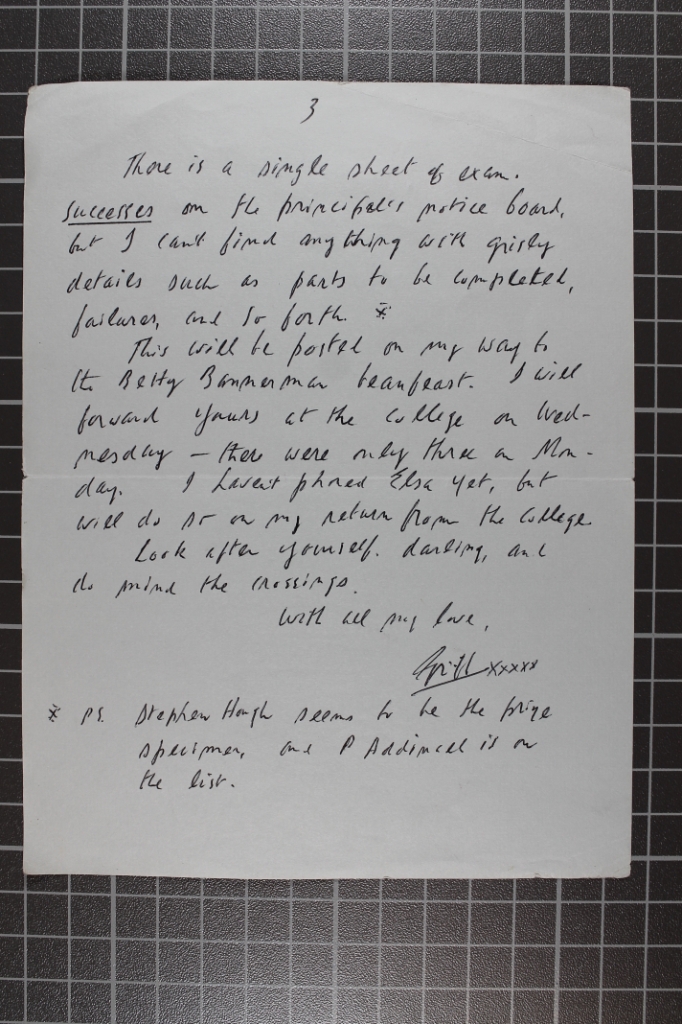 3
There is a single sheet of exam.
successes on the principal's notice board,
but I can't find anything with grisly
details such as parts to be completed,
failures, and so forth. *
This will be posted on my way to
the Betty Bannerman beanfeast. I will
forward yours at the college on Wed-
nesday — there were only three on Mon-
day. I haven't phoned Elsa yet, but
will do so on my return from the College.
Look after yourself, darling, and
do mind the crossings.
With all my love,
xxxxx
* PS. Stephen Hough seems to be the prize
specimen, and P Addinall is on
the list.